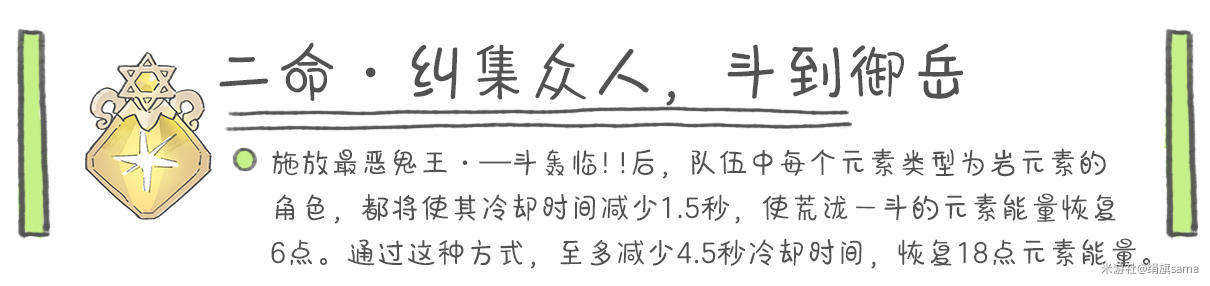 二命·纠集众人，斗到御岳
施放最恶鬼王·一斗轰临！！后，队伍中每个元素类型为岩元素的
角色，都将使其冷却时间减少1.5秒，使荒泷一斗的元素能量恢复
6点。通过这种方式，至多减少4.5秒冷却时间，恢复18点元素能量。
米游社@绢旗sama